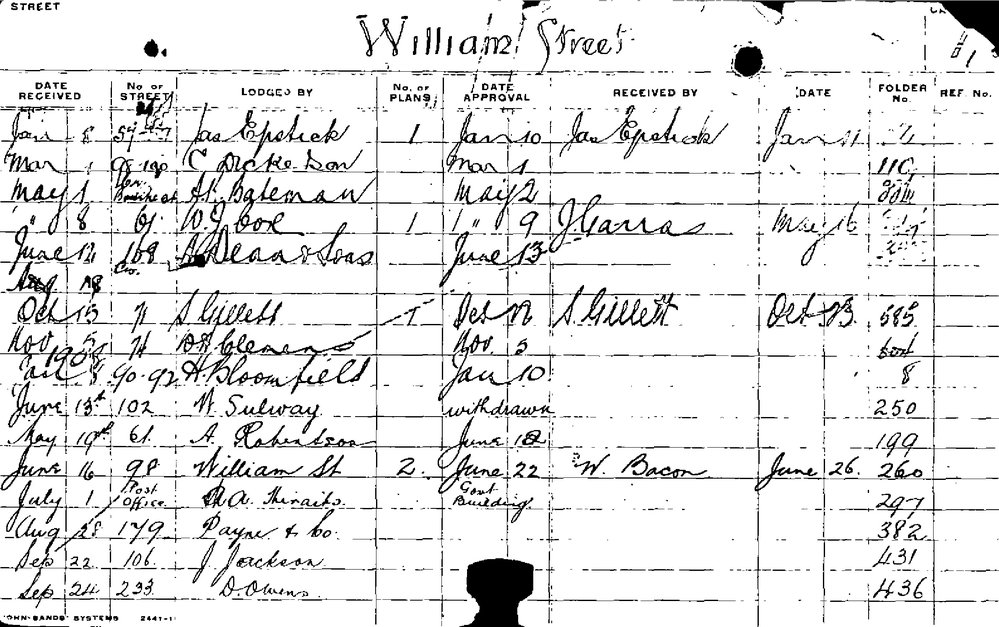 STREET
William Street
DATE RECEIVED No. OF STREET LODGED BY No. OF PLANS DATE APPROVAL RECEIVED BY DATE FOLDER No. REF. No.
Jan 8 Jas Epstick 1 Jan 10 Jas Epstick Jan 11
Mar 1 98-100 C Mar 1 110
May 1 Bateman May 2
" 8 61 W. J. Cox 1 " 9 J Garras May 16
June 12 168 & Sons June 13
Cr.
Aug 18
Oct 15 71 S Gillett 1 Oct S Gillett Oct 23 585
Nov 5 74 Clemens Nov. 5
1908
Jan 8 90-92 H Bloomfield Jan 10 8
June 13th 102 W Sulway withdrawn 250
May 19th 61 A. Robertson June 12 199
June 16 98 William St 2. June 22 W. Bacon June 26. 260
July 1 Post Office A. Thwaites Govt Building 297
Aug 28 179 Payne & Co. 382
Sep 22 106. J Jackson 431
Sep 24 233. D. Owens 436
JOHN SANDS' SYSTEMS 2441-1